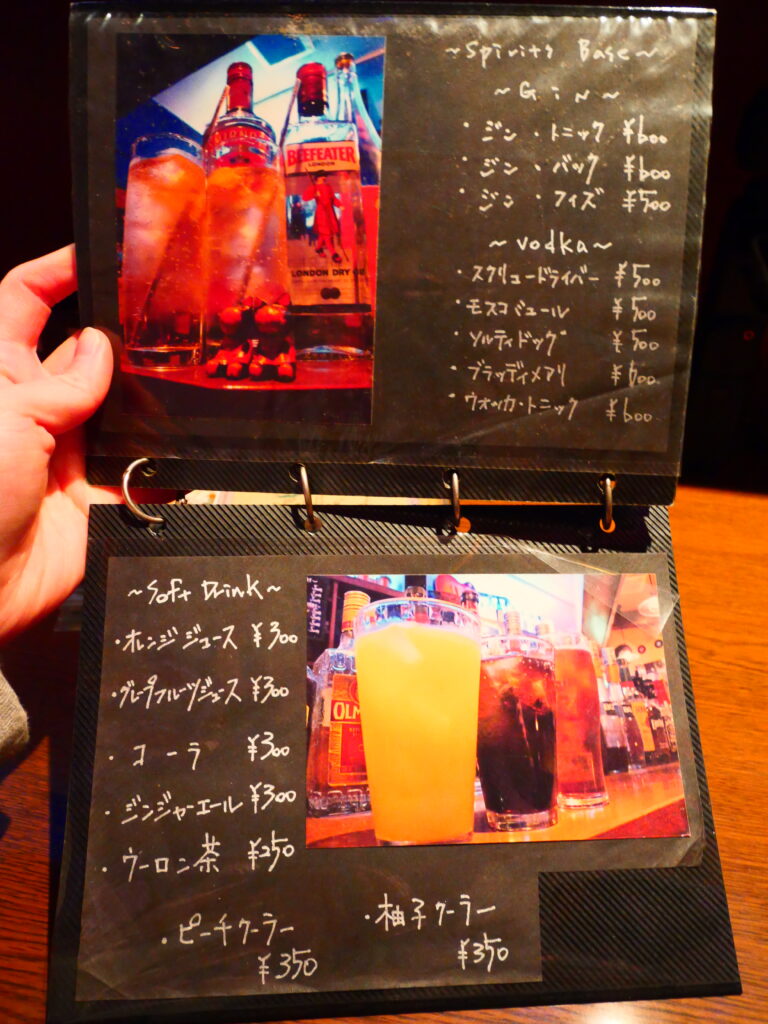 ~Spirits Base~
~Gin~
・ジン・トニック ¥600
・ジン・バック ¥600
・ジン・フィズ ¥500
~vodka~
・スクリュードライバー ¥500
・モスコミュール ¥500
・ソルティドッグ ¥500
・ブラッディメアリ ¥600
・ウオッカ・トニック ¥600
BEEFEATER
LONDON
LONDON DRY GI
~Soft Drink~
・オレンジジュース ¥300
・グレープフルーツジュース ¥300
・コーラ ¥300
・ジンジャーエール ¥300
・ウーロン茶 ¥250
・ピーチクーラー
¥350
・柚子クーラー
¥350
OLM